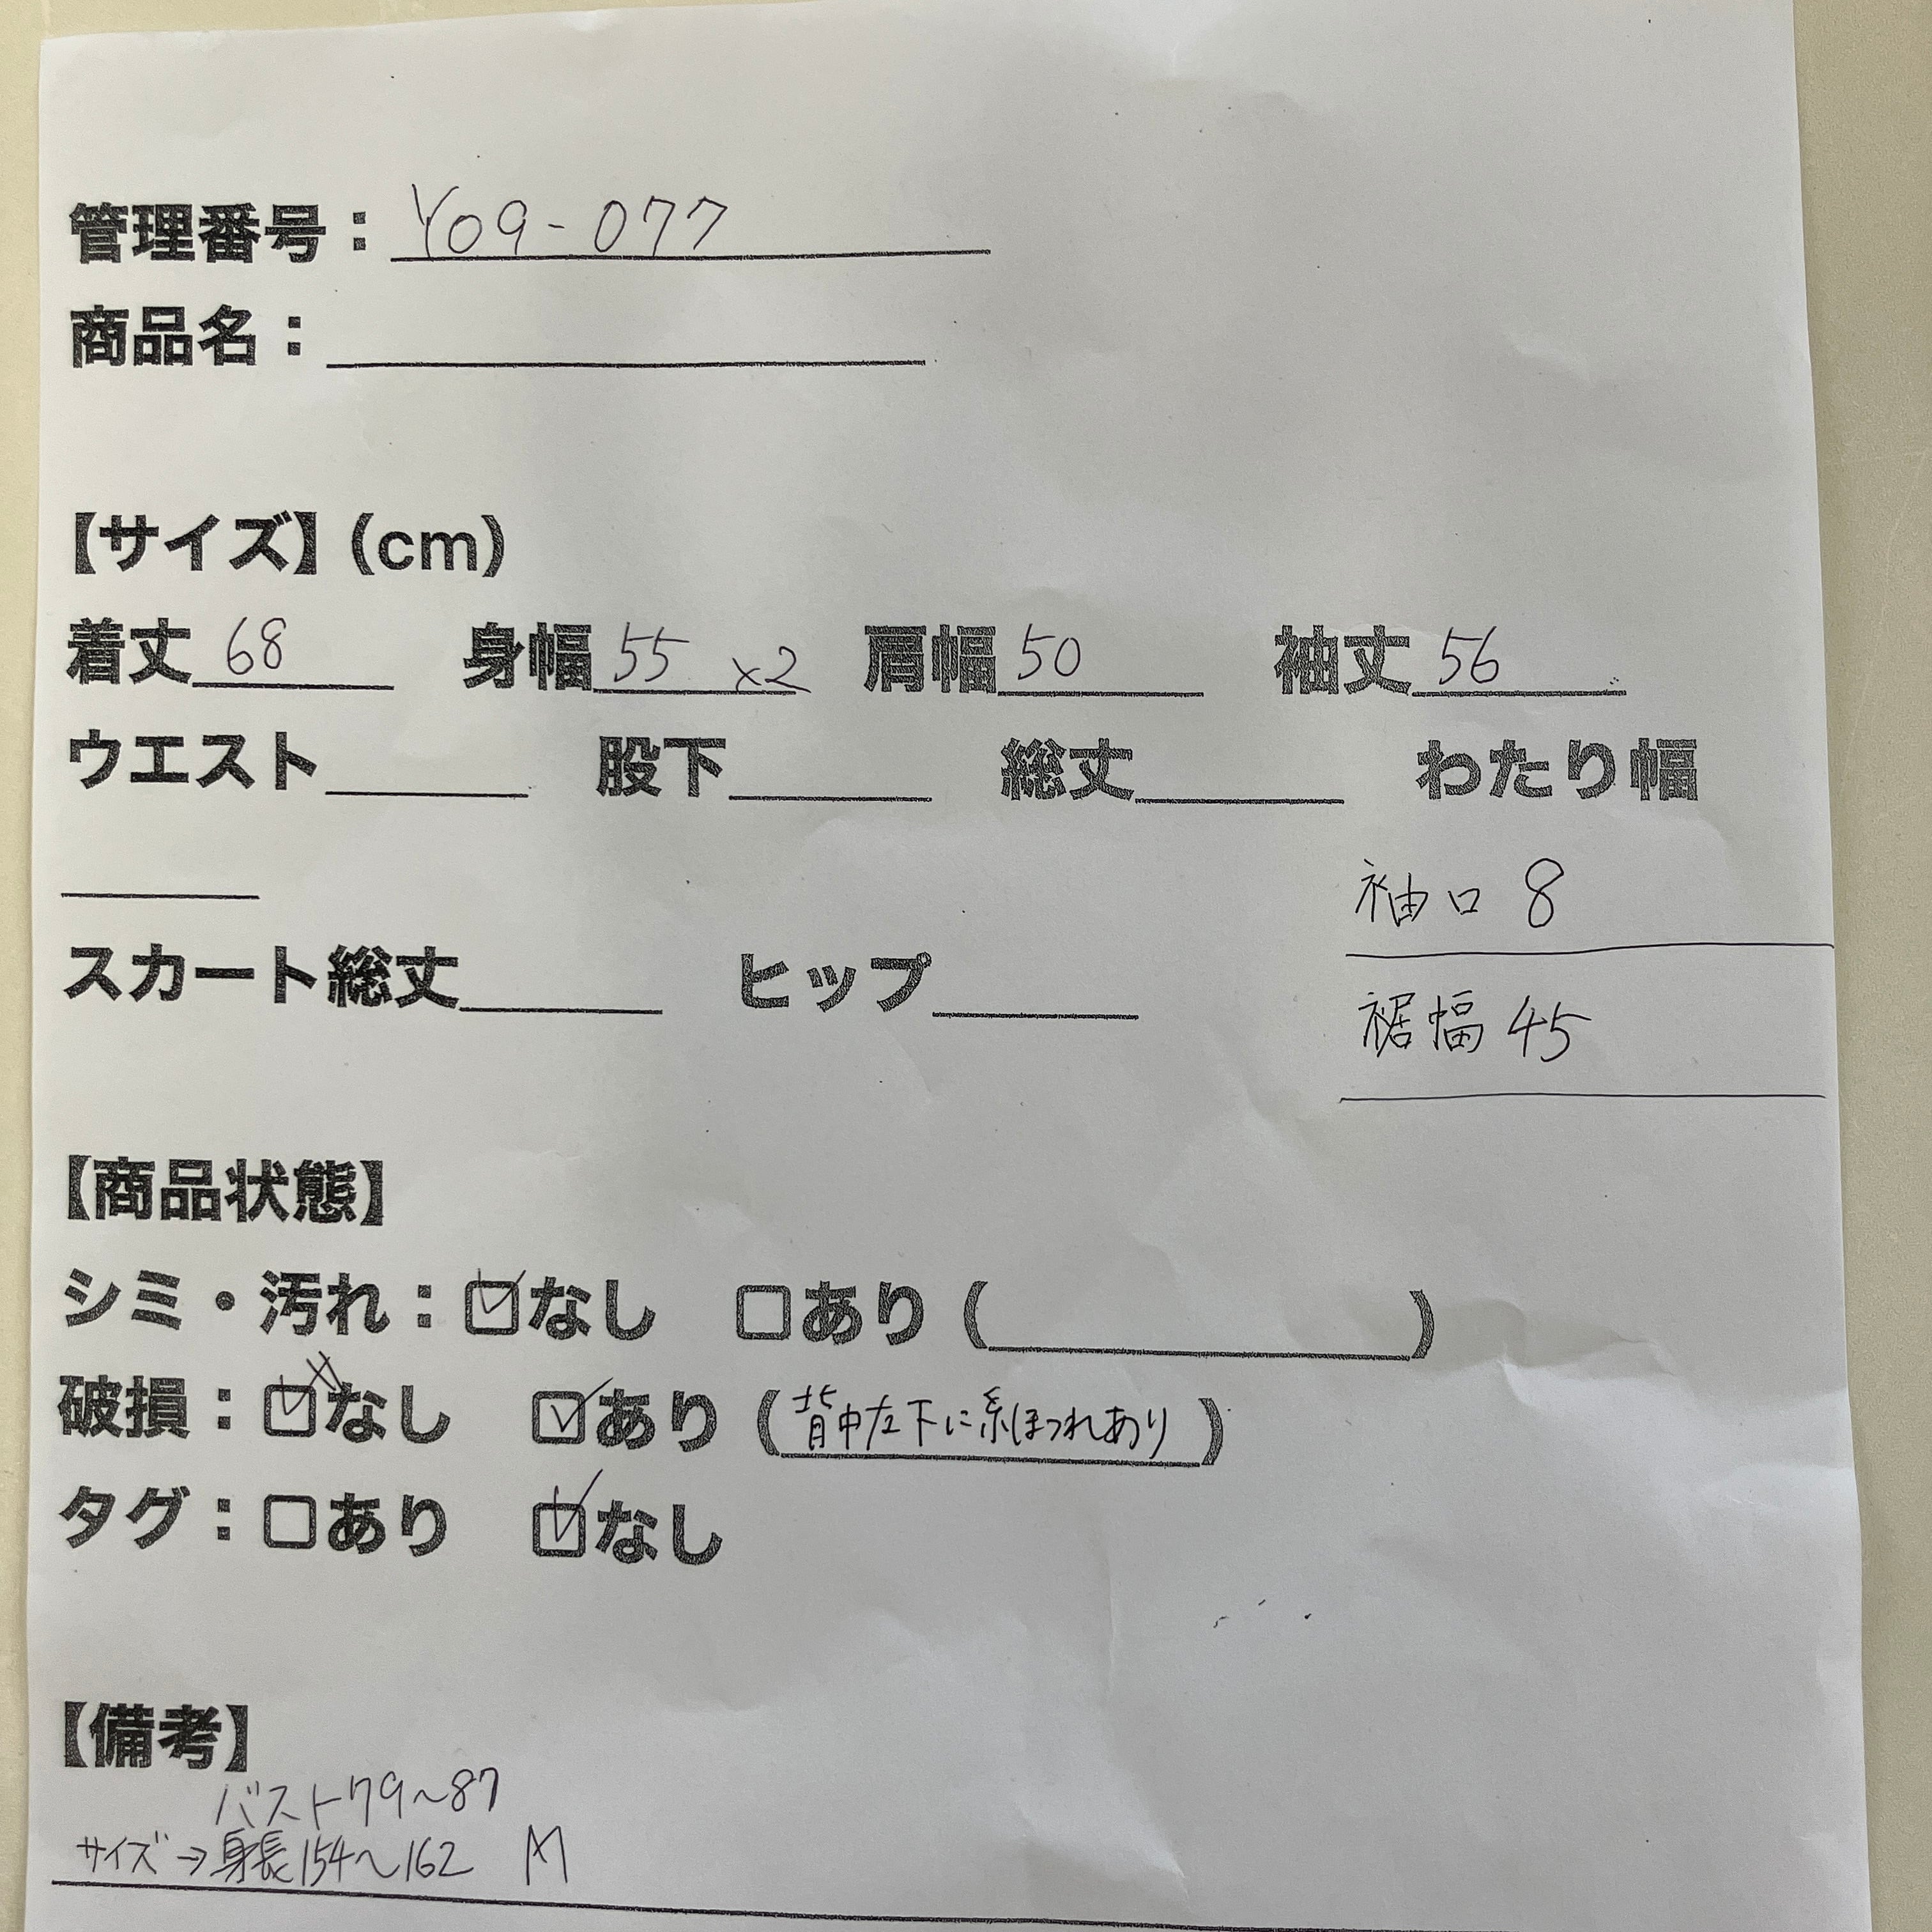 管理番号：Y09-077
商品名：
【サイズ】(cm)
着丈 68 身幅 55 ×2 肩幅 50 袖丈 56
ウエスト 股下 総丈 わたり幅
袖口 8
スカート総丈 ヒップ
裾幅 45
【商品状態】
シミ・汚れ：☑なし □あり（ ）
破損：☑なし ☑あり（背中左下に糸ほつれあり）
タグ：□あり ☑なし
【備考】
バスト79～87
サイズ→身長154～162 M